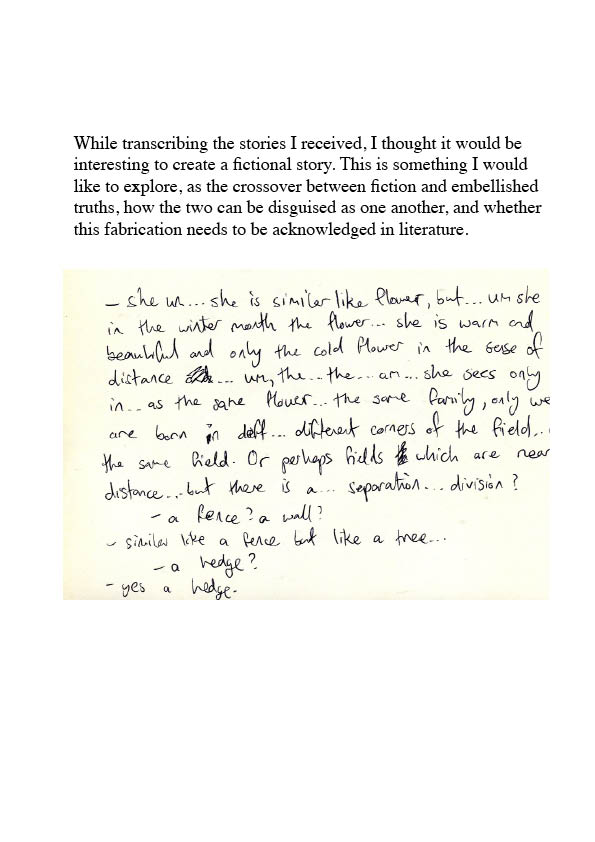 While transcribing the stories I received, I thought it would be
interesting to create a fictional story. This is something I would
like to explore, as the crossover between fiction and embellished
truths, how the two can be disguised as one another, and whether
this fabrication needs to be acknowledged in literature.
– she um... she is similar like flower, but... um she
in the winter month the flower... she is warm and
beautiful and only the cold flower in the sense of
distance ... um, the... the... am... she sees only
in... as the same flower... the same family, only we
are born in deff... different corners of the field...
the same field. Or perhaps fields which are near
distance... but there is a... separation... division?
– a fence? a wall?
– similar like a fence but like a tree...
– a hedge?
– yes a hedge.